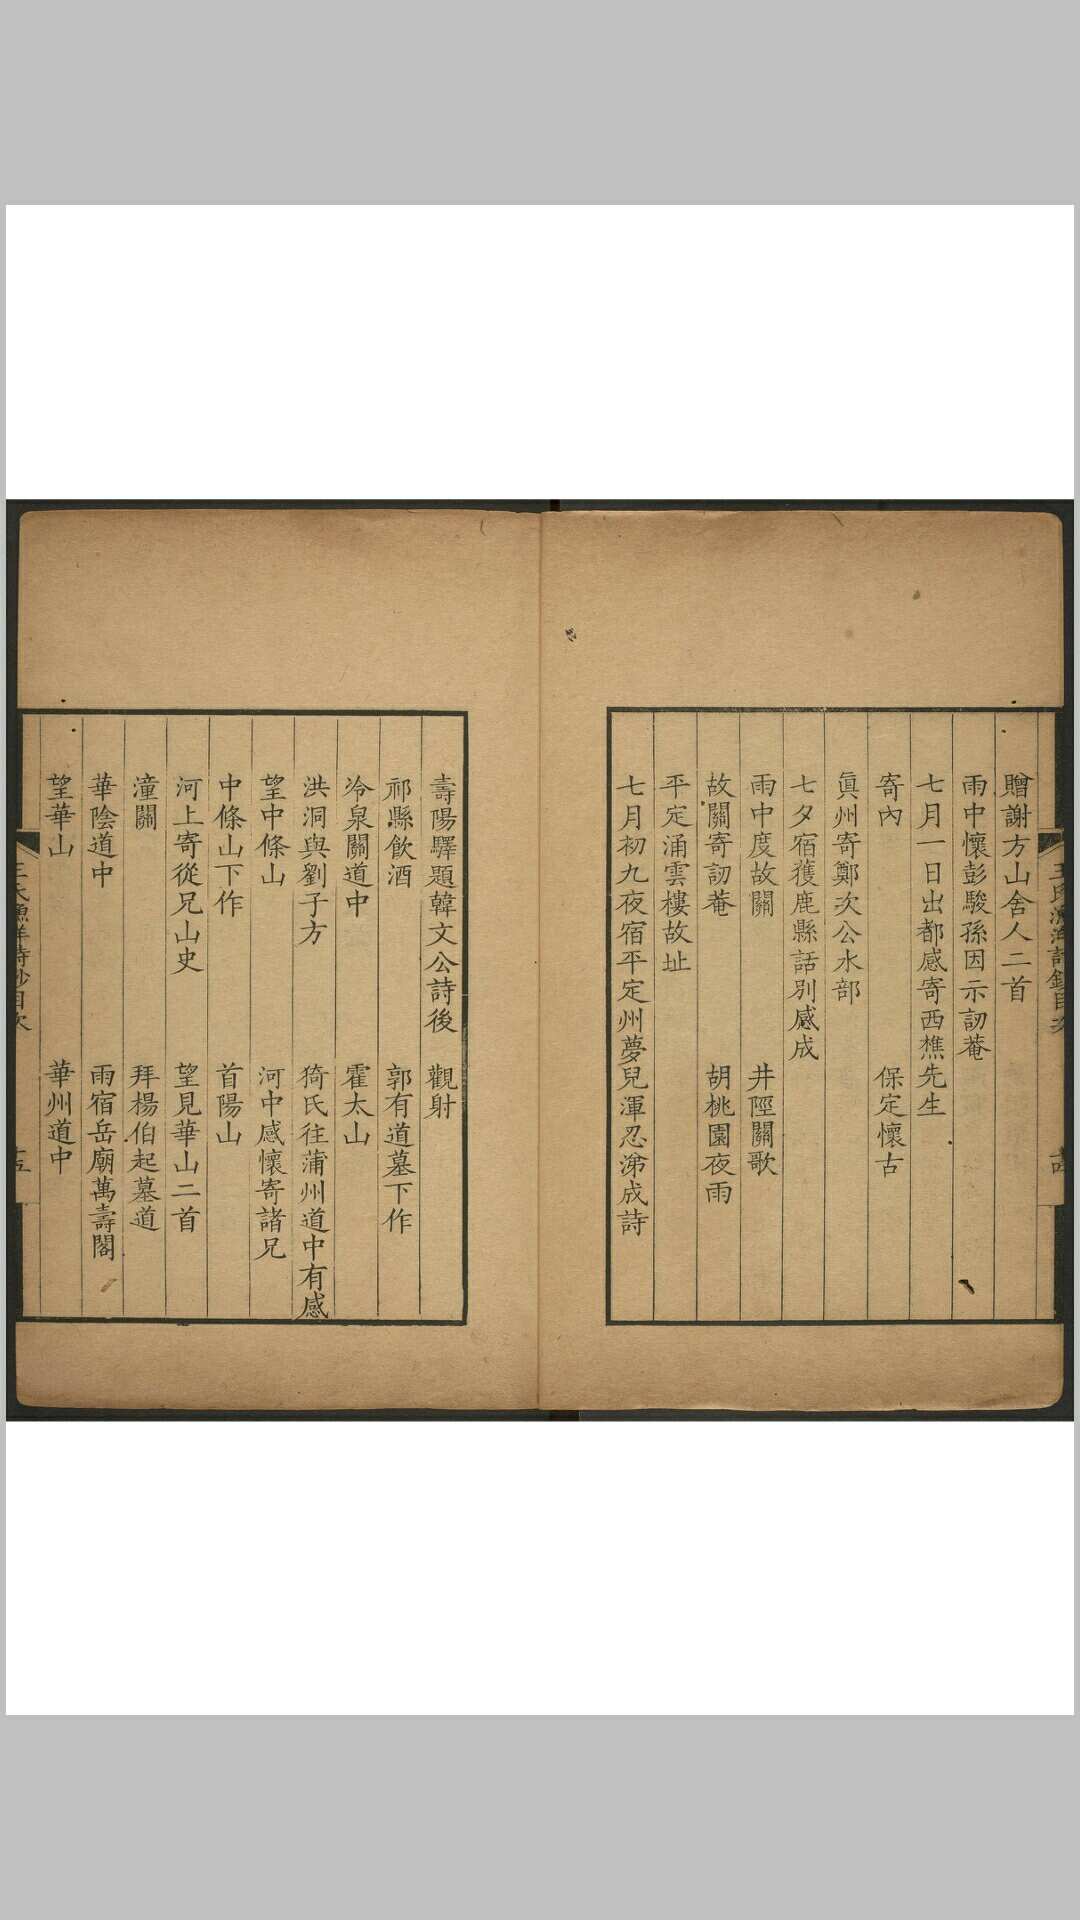 贈謝方山舍人二首
雨中懷彭駿孫因示訒菴
七月一日出都感寄西樵先生
寄內　保定懷古
眞州寄鄭次公水部
七夕宿獲鹿縣話別感成
雨中度故關　井陘關歌
故關寄訒菴　胡桃園夜雨
平定涌雲樓故址
七月初九夜宿平定州夢兒渾忍涕成詩
壽陽驛題韓文公詩後　觀射
祁縣飲酒　郭有道墓下作
冷泉關道中　霍太山
洪洞與劉子方　猗氏往蒲州道中有感
望中條山　河中感懷寄諸兄
中條山下作　首陽山
河上寄從兄山史　望見華山二首
潼關　拜楊伯起墓道
華陰道中　雨宿岳廟萬壽閣
望華山　華州道中
王氏漁洋詩鈔目次